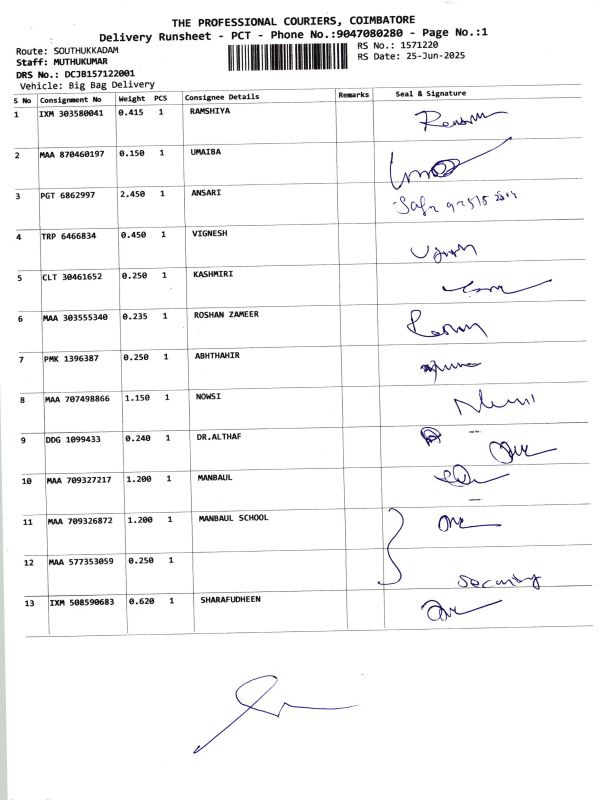 THE PROFESSIONAL COURIERS, COIMBATORE
Delivery Runsheet - PCT - Phone No.:9047080280 - Page No.:1
Route: SOUTHUKKADAM RS No.: 1571220
Staff: MUTHUKUMAR RS Date: 25-Jun-2025
DRS No.: DCJB157122001
Vehicle: Big Bag Delivery
S No Consignment No Weight PCS Consignee Details Remarks Seal & Signature
1 IXM 303580041 0.415 1 RAMSHIYA
2 MAA 870460197 0.150 1 UMAIBA
3 PGT 6862997 2.450 1 ANSARI
4 TRP 6466834 0.450 1 VIGNESH
5 CLT 30461652 0.250 1 KASHMIRI
6 MAA 303555340 0.235 1 ROSHAN ZAMEER
7 PMK 1396387 0.250 1 ABHTHAHIR
8 MAA 707498866 1.150 1 NOWSI
9 DDG 1099433 0.240 1 DR.ALTHAF
10 MAA 709327217 1.200 1 MANBAUL
11 MAA 709326872 1.200 1 MANBAUL SCHOOL
12 MAA 577353059 0.250 1 Security
13 IXM 508590683 0.620 1 SHARAFUDHEEN